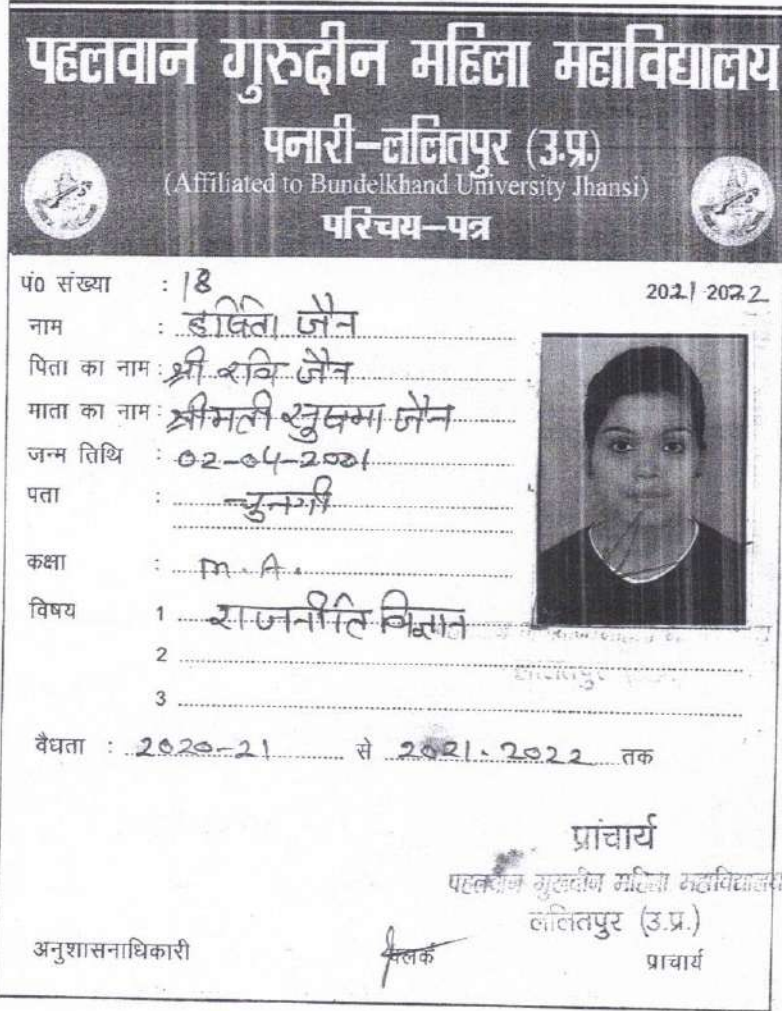 पहलवान गुरुदीन महिला महाविद्यालय
पनारी–ललितपुर (उ.प्र.)
(Affiliated to Bundelkhand University Jhansi)
परिचय–पत्र
पं0 संख्या : 18
2021 2022
नाम : हर्षिता जैन
पिता का नाम : श्री रवि जैन
माता का नाम : श्रीमती सुषमा जैन
जन्म तिथि : 02-04-2001
पता : चुनगी
कक्षा : M.A.
विषय 1 राजनीति विज्ञान
2
3
वैधता : 2020-21 से 2021-2022 तक
प्रांचार्य
पहलवान गुरुदीन महिला महाविद्यालय
ललितपुर (उ.प्र.)
अनुशासनाधिकारी क्लर्क प्राचार्य